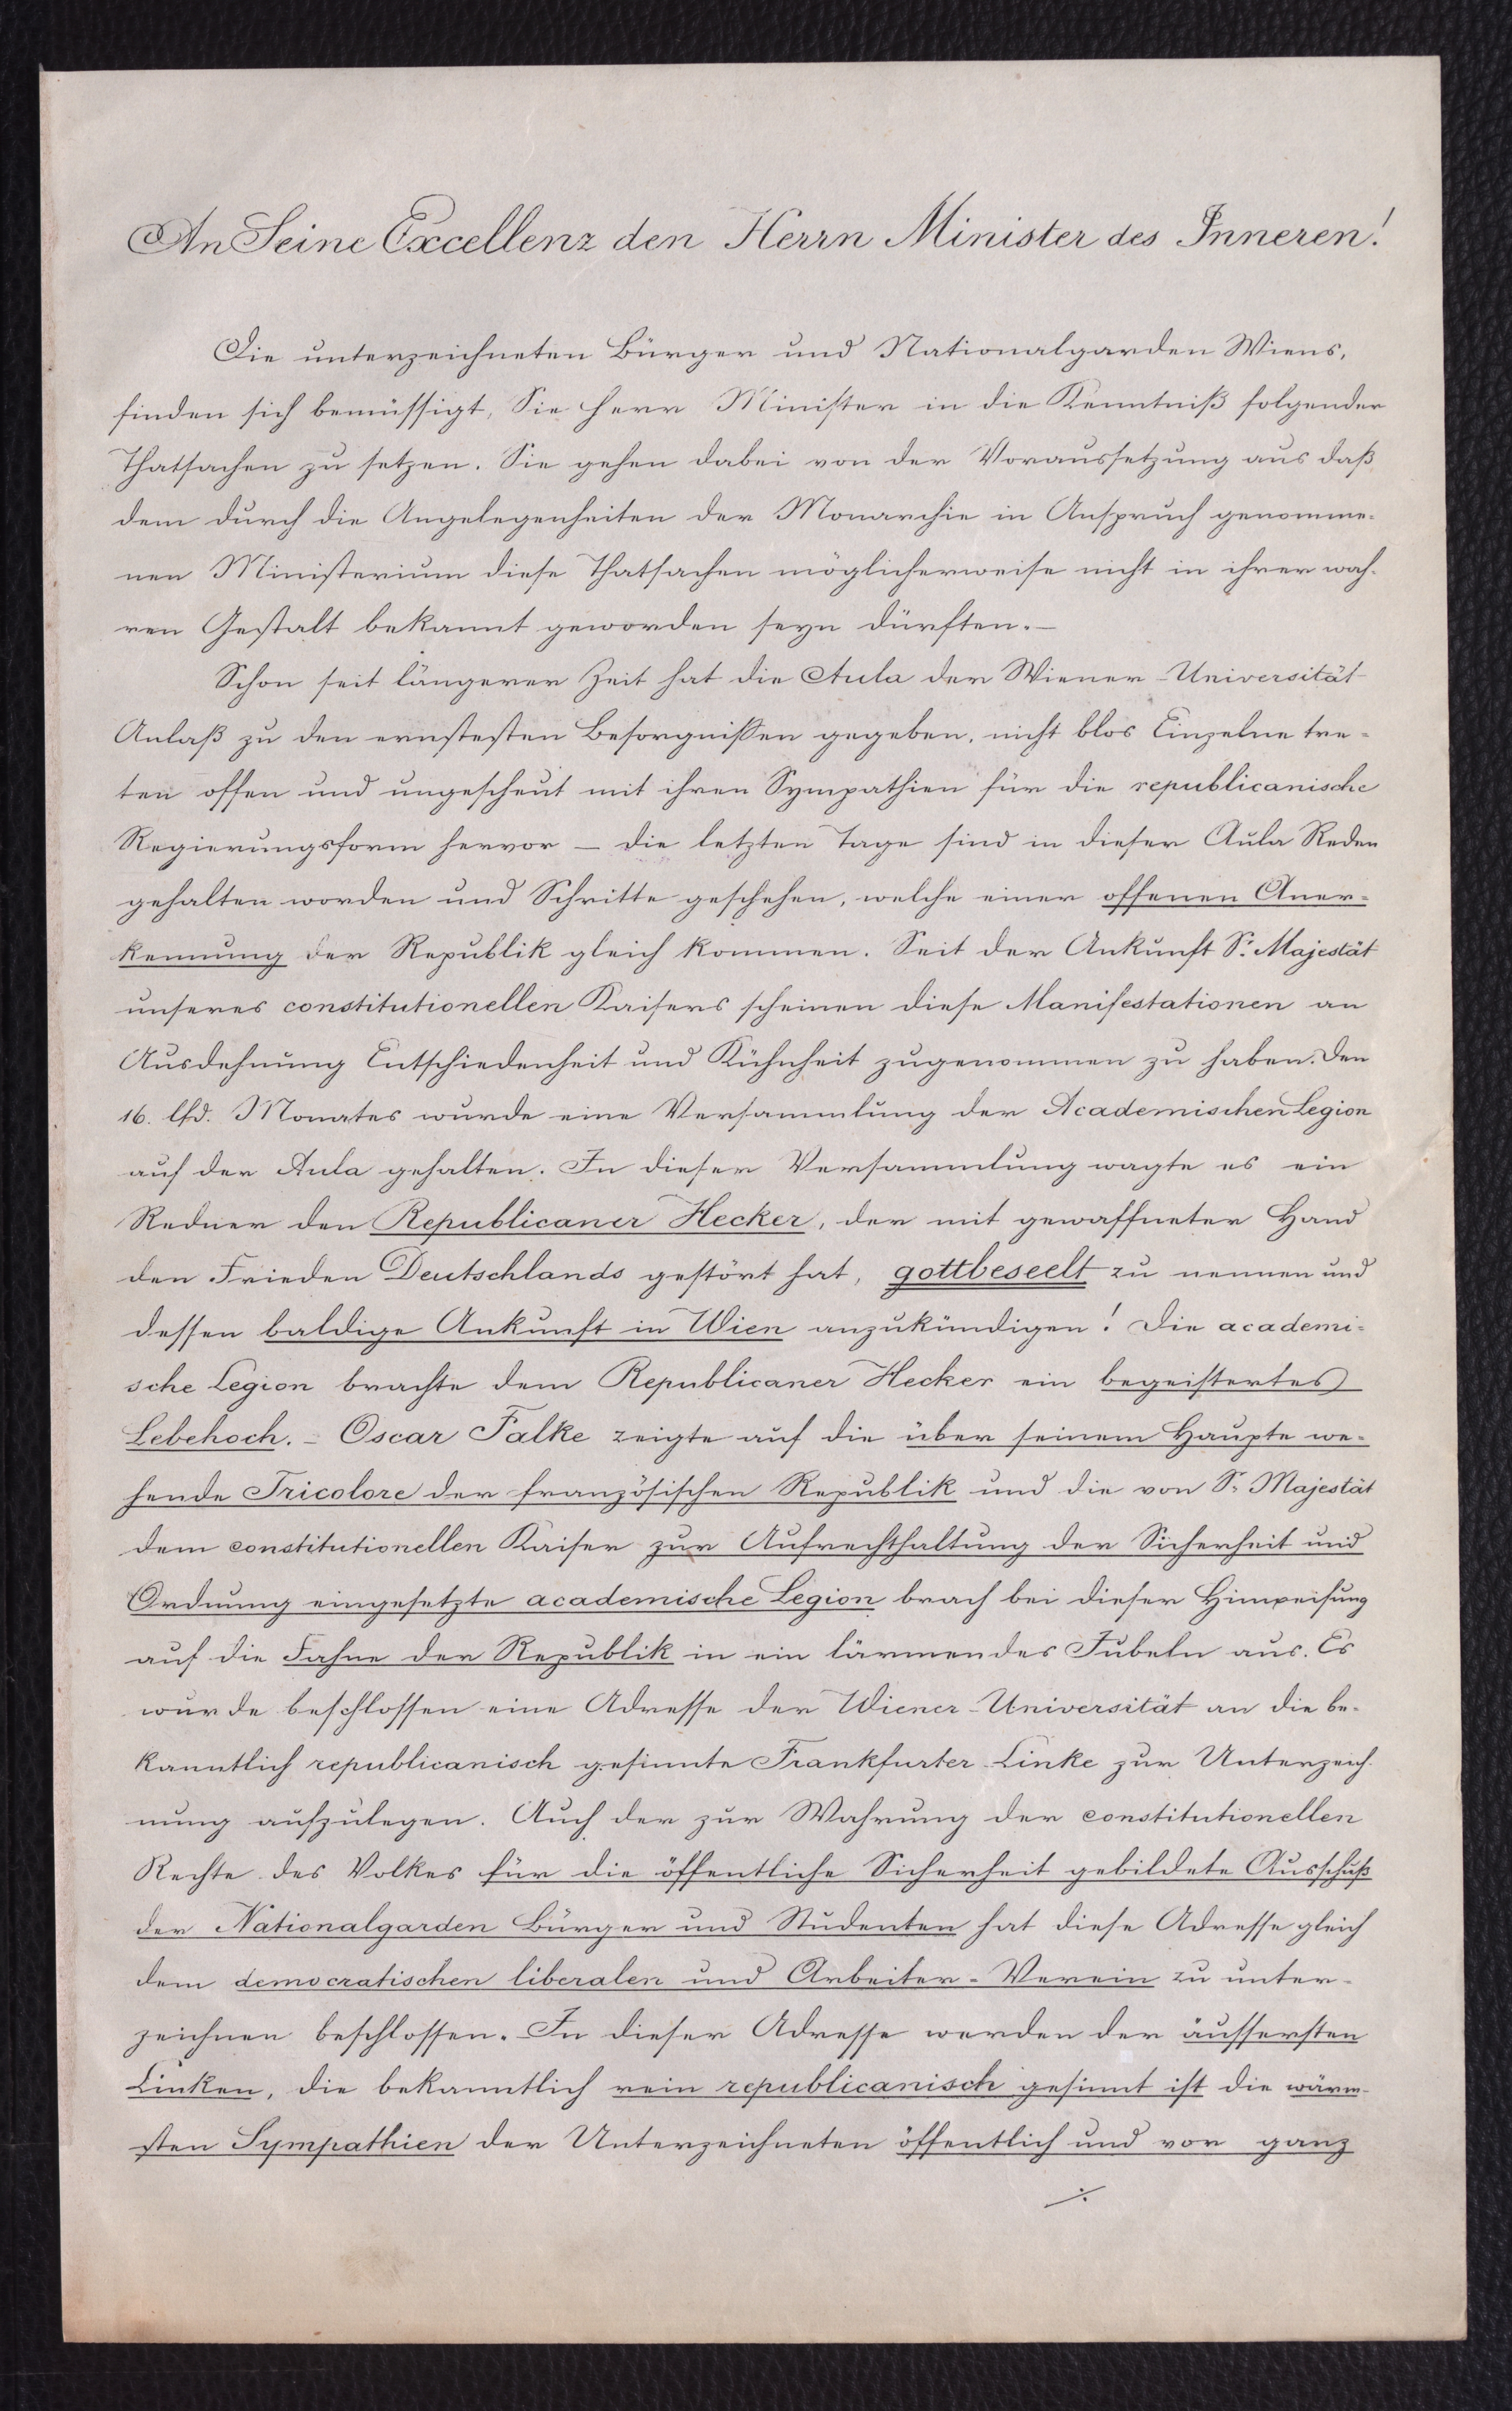 An Seine Excellenz den Herrn Minister des Inneren!
Die unterzeichneten Bürger und Nationalgarden Wiens,
finden sich bemüssigt, Sie Herr Minister in die Kenntniß folgender
Thatsachen zu setzen. Sie gehen dabei von der Voraussetzung aus daß
dem durch die Angelegenheiten der Monarchie in Anspruch genomme-
nen Ministerium diese Thatsachen möglicherweise nicht in ihrer wah-
ren Gestalt bekannt geworden seyn dürften.—
Schon seit längerer Zeit hat die Aula der Wiener-Universität
Anlaß zu den ernstesten Besorgnissen gegeben, nicht blos Einzelne tre-
ten offen und ungescheut mit ihren Sympathien für die republicanische
Regierungsform hervor — die letzten Tage sind in dieser Aula Reden
gehalten worden und Schritte geschehen, welche einer offenen Aner-
kennung der Republik gleich kommen. Seit der Ankunft Sr. Majestät
unseres constitutionellen Kaisers scheinen diese Manifestationen an
Ausdehnung Entschiedenheit und Kühnheit zugenommen zu haben. Den
16. lfd. Monates wurde eine Versammlung der Academischen Legion
auf der Aula gehalten. In dieser Versammlung wagte es ein
Redner den Republicaner Hecker, der mit gewaffneter Hand
den Frieden Deutschlands gestört hat, gottbeseelt zu nennen und
dessen baldige Ankunft in Wien anzukündigen! Die academi-
sche Legion brachte dem Republicaner Hecker ein begeistertes
Lebehoch. – Oscar Falke zeigte auf die über seinem Haupte we-
hende Tricolore der französischen Republik und die von Sr. Majestät
dem constitutionellen Kaiser zur Aufrechthaltung der Sicherheit und
Ordnung eingesetzte academische Legion brach bei dieser Hinweisung
auf die Fahne der Republik in ein lärmendes Jubeln aus. Es
wurde beschlossen eine Adresse der Wiener-Universität an die be-
kanntlich republicanisch gesinnte Frankfurter Linke zur Unterzeich-
nung aufzulegen. Auch der zur Wahrung der constitutionellen
Rechte des Volkes für die öffentliche Sicherheit gebildete Ausschuß
der Nationalgarden Bürger und Studenten hat diese Adresse gleich
dem democratischen liberalen und Arbeiter-Verein zu unter-
zeichnen beschlossen. In dieser Adresse werden der äussersten
Linken, die bekanntlich rein republicanisch gesinnt ist die wärm-
sten Sympathien der Unterzeichneten öffentlich und vor ganz
./.